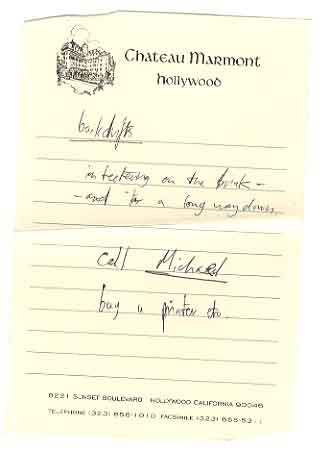 Chateau Marmont
Hollywood
backdrifts
i'm teetering on the brink -
- and it's a long way down.
call Michael
buy a printer etc.
8221 SUNSET BOULEVARD HOLLYWOOD CALIFORNIA 90046
TELEPHONE (323) 656-1010 FACSIMILE (323) 655-53